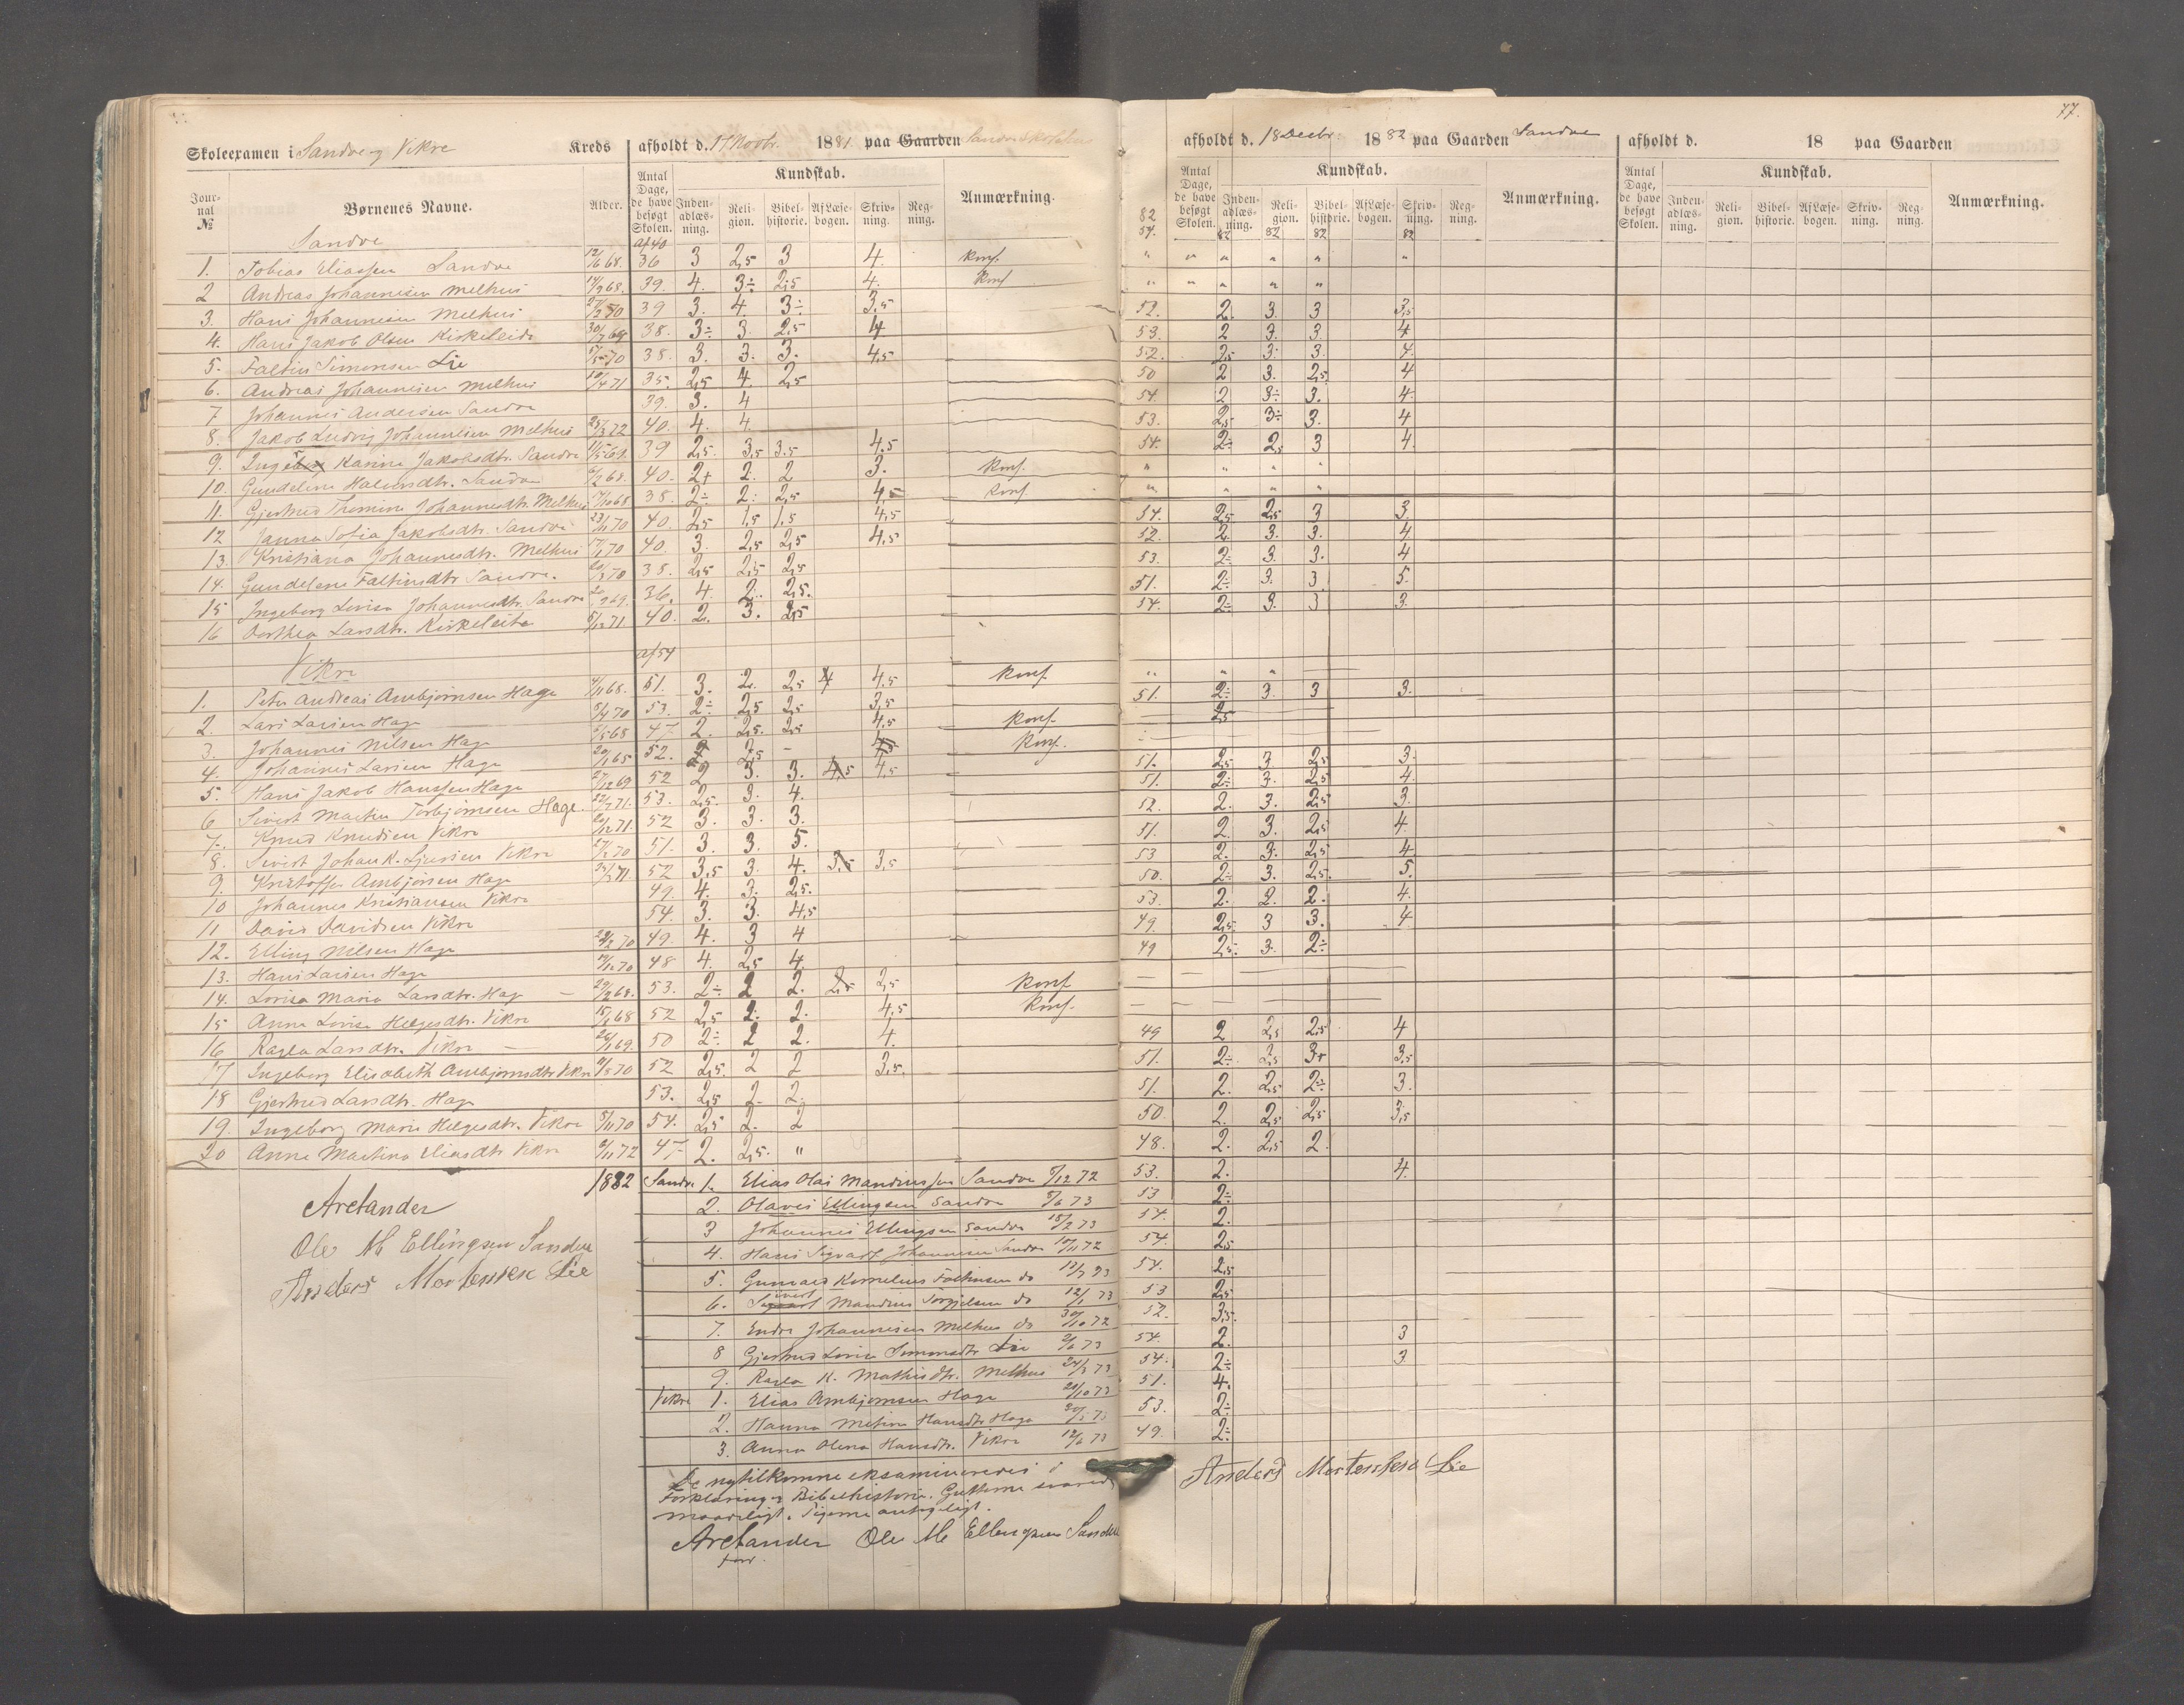 77.
Skoleexamen i Sandve og Vikre Kreds afholdt d. 17 Novbr. 1881 paa Gaarden Sandve Skolehus
afholdt d. 18 Decbr. 1882 paa Gaarden Sandve
afholdt d. 18 paa Gaarden
Journal № Børnenes Navne. Alder. Antal Dage, de have besøgt Skolen. Kundskab. Indenadlæsning. Religion. Bibelhistorie. Af Læsebogen. Skrivning. Regning. Anmærkning.
Antal Dage, de have besøgt Skolen. Kundskab. Indenadlæsning. Religion. Bibelhistorie. Af Læsebogen. Skrivning. Regning. Anmærkning.
Antal Dage, de have besøgt Skolen. Kundskab. Indenadlæsning. Religion. Bibelhistorie. Af Læsebogen. Skrivning. Regning. Anmærkning.
82 54. 82 82 82 82
Sandve af 40
1. Tobias Eliassen Sandve 12/6 68. 36 3 2,5 3 4. Konf. " " " " " "
2 Andreas Johannesen Melhus 39. 4. 3÷ 2,5 4. Konf " " " " "
3. Hans Johannesen Melhus 39 3. 4. 3÷ 3,5 52. 2. 3. 3 3,5
4. Hans Jakob Olsen Kirkeleite 30/7 69 38. 3÷ 3. 2,5 4 53. 2 3. 3. 4
5. Faltin Simonsen Lie 5/5 70 38. 3. 3. 3. 4,5 52. 2,5 3. 3. 4.
6. Andreas Johannesen Melhus 10/4 71 35. 2,5 4. 2,5 50 2 3. 2,5 4
7 Johannes Andersen Sandve 39. 3. 4 54. 2 3÷ 3. 4.
8. Jakob Ludvig Johannesen Melhus 25/3 72 40. 4. 4. 53. 2,5 3÷ 3. 4
9. Karine Jakobsdtr. Sandve 39 2,5. 3,5 3.5 4,5 54. 2÷ 2,5 3 4.
10. Gundeline Halvorsdtr. Sandve 6/2 68. 40. 2+ 2. 2 3. Konf. " " " "
11. Gjertrud Thomine Johannesdtr. Melhus 38. 2÷ 2. 2,5 4,5 Konf. " " " "
12 Janna Sofia Jakobsdtr. Sandve 23/11 70 40. 2,5 1,5 1,5 4,5 54. 2,5 2,5 3 3.
13. Kristiana Johannesdtr. Melhus 17/1 70 40. 3. 2,5 2,5 4,5 52. 2. 3. 3. 4
14. Gundelene Faltinsdtr Sandve. 20/3 70 38. 2,5 2,5 2,5 53. 2÷ 3. 3. 4
15 Ingeborg Lovisa Johannesdtr. Sandve 36. 4. 2. 2,5. 51. 2÷ 3. 3 5.
16 Dorthea Larsdtr. Kirkeleite 5/12 71 40. 2. 3. 2,5 54. 2÷ 3. 3 3.
Vikre af 54
1. Peter Andreas Ambjørnsen Hage 4/11 68. 51. 3. 2. 2,5 4 4,5 Konf. " " "
2. Lars Larsen Hage 5/4 70 53. 2÷ 2,5 2,5 3,5 51. 2÷ 3. 3 3.
3. Johannes Nilsen Hage 47 2. 2,5. 2,5 4,5 Konf. 2,5
4. Johannes Larsen Hage 20/1 65 52. 2 2,5 - 4,5 Konf.
5. Hans Jakob Hanssen Hage 27/12 69 52 2 3. 3. 4,5 4,5 51. 2,5 3. 2,5 3.
6 Sivert Martin Torbjørnsen Hage. 22/7 71. 53. 2,5. 3. 4. 51. 2÷ 3. 2,5 4.
7. Knud Knudsen Vikre 20/12 71. 52 3. 3. 3. 52. 2. 3. 2,5 3.
8. Sivert Johan K. Sjursen Vikre 27/2 70 51. 3. 3. 5. 51. 2. 3. 2,5 4.
9. Kristoffer Ambjørnsen Hage 52 3,5 3. 4. 3,5 3,5 53 2. 3. 2,5 4.
10 Johannes Kristiansen Vikre 49. 4. 3. 2,5. 50. 2÷ 3. 2,5. 5.
11 David Davidsen Vikre 54. 3. 3. 4,5 53. 2. 2. 2. 4.
12. Elling Nilsen Hage 49. 4. 3 4 49. 2,5 3 3. 4.
13. Hans Larsen Hage 48 4. 2,5 4. 49 2,5 3. 2÷
14. Lovisa Maria Larsdtr. Hage 29/2 68. 53. 2÷ 2 2. 2,5 2,5 Konf
15 Anna Lovisa Helgesdtr. Vikre 52 2,5 2. 2. 4,5 Konf.
16 Ragla Larsdtr. Vikre 50 2÷ 2 2. 4. 49 2 2,5 2,5 4
17 Ingeborg Elisabeth Ambjørnsdtr Vikre 52 2,5. 2 2 3,5. 51. 2÷ 2,5 3+ 3,5
18 Gjertrud Larsdtr. Hage 53. 2,5 2. 2. 51. 2. 2,5 2÷ 3.
19. Ingeborg Marie Helgesdtr. Vikre 8/11 70 54. 2,5 2. 2 50. 2. 2,5 2,5 3,5
20 Anne Martina Eliasdtr Vikre 6/11 72 47 2. 2,5. " 48. 2. 2,5 2.
1882 Sandve 1. Elias Olai Mandiussen Sandve 5/12 72 53. 2. 4.
2. Olavus Ellingsen Sandve 5/6 73 53 2÷
3 Johannes Ellingsen Sandve 54. 2.
4. Hans Sigvart Johannesen Sandve 54. 2,5
5. Gunvald Kornelius Faltinsen do 54. 2,5
6. Sivert Mandius Torgjelsen do 12/1 73 53 2,5
7. Endre Johannesen Melhus do 30/10 72 52. 3,5.
8 Gjertrud Lovise Simonsdtr Lie 54. 2. 3
9. Ragla K. Mathisdtr. Melhus 24/3 73 54. 2÷ 3
Vikre 1. Elias Ambjørnsen Hage 51. 4.
2. Hanna Metina Hansdtr Hage 53. 2÷
3. Anna Olena Hansdtr. Vikre 49. 2÷
Aretander
Ole M Ellingsen Sandve
Anders Mortensen Lie
De nytilkomne eksamineredes i
Forklaring og Bibelhistorie. Gutterne svared
maadeligt. Pigerne antageligt.
Aretander Ole M Ellingsen Sandve
Anders Mortensen Lie